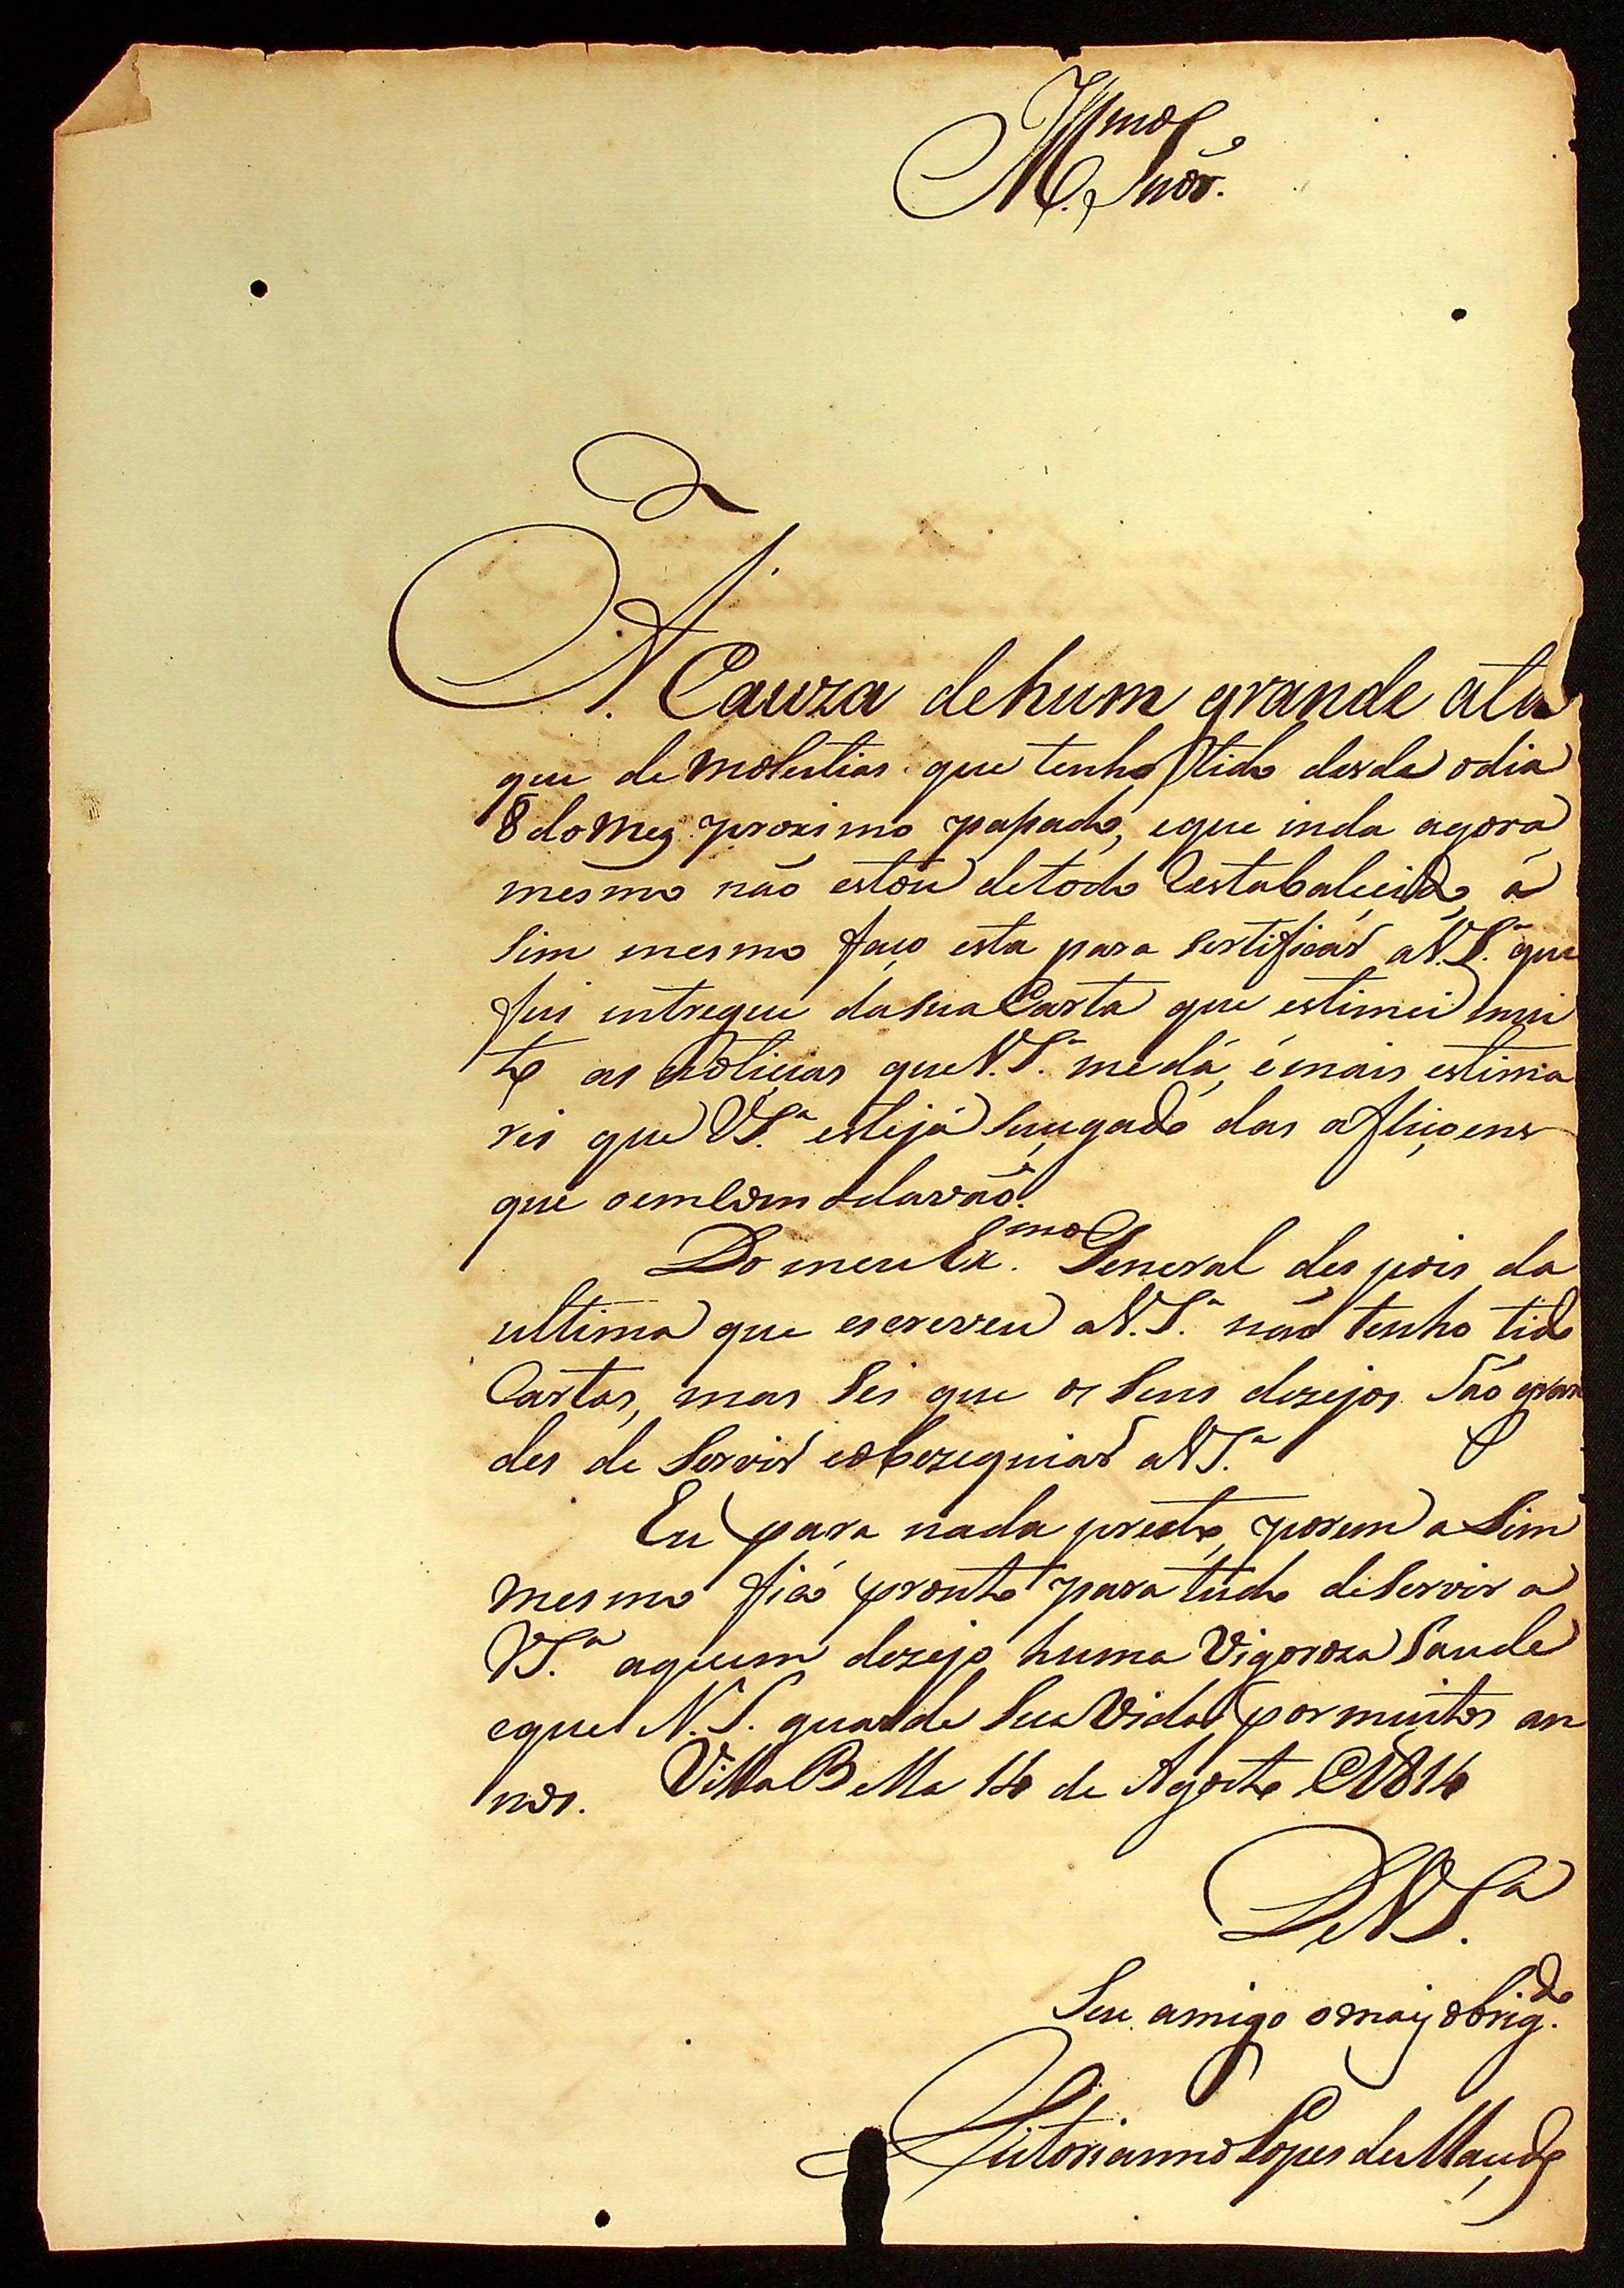 Illmo
M. Snõr.
A Cauza dehum grande ata
que de molestias que tenho tido desda odia
8 do Mez proximo passado, eque inda agora
mesmo não estou detodo Restabalecido, á
Sim mesmo faço esta para Sertificar aV.Sª. que
fui entregue dasua Carta que estimei mui
to as noticias que V.Sª. medá, é mais estima
rei que VSª. estejá Suçegado das afliçoens
que oemComodavaõ.
Do meu Exmo. General des pois da
ultima que escreveu aV.Sª. naõ tenho tido
Cartas, mas Sei que os Seus dezejos Saõ gran
des de Servir eobzequiar aVSª.
Eu para nada presto, porem a Sim
mesmo fico pronto para tudo deServir a
VSª. aquem dezejo huma Vigoroza Saude
eque N.S. guarde Sua Vida por muitos an
nos. Villa Bella 14 de Agosto 1814
DeVSª.
Seu amigo omaiz obrigdo.
Lopes de